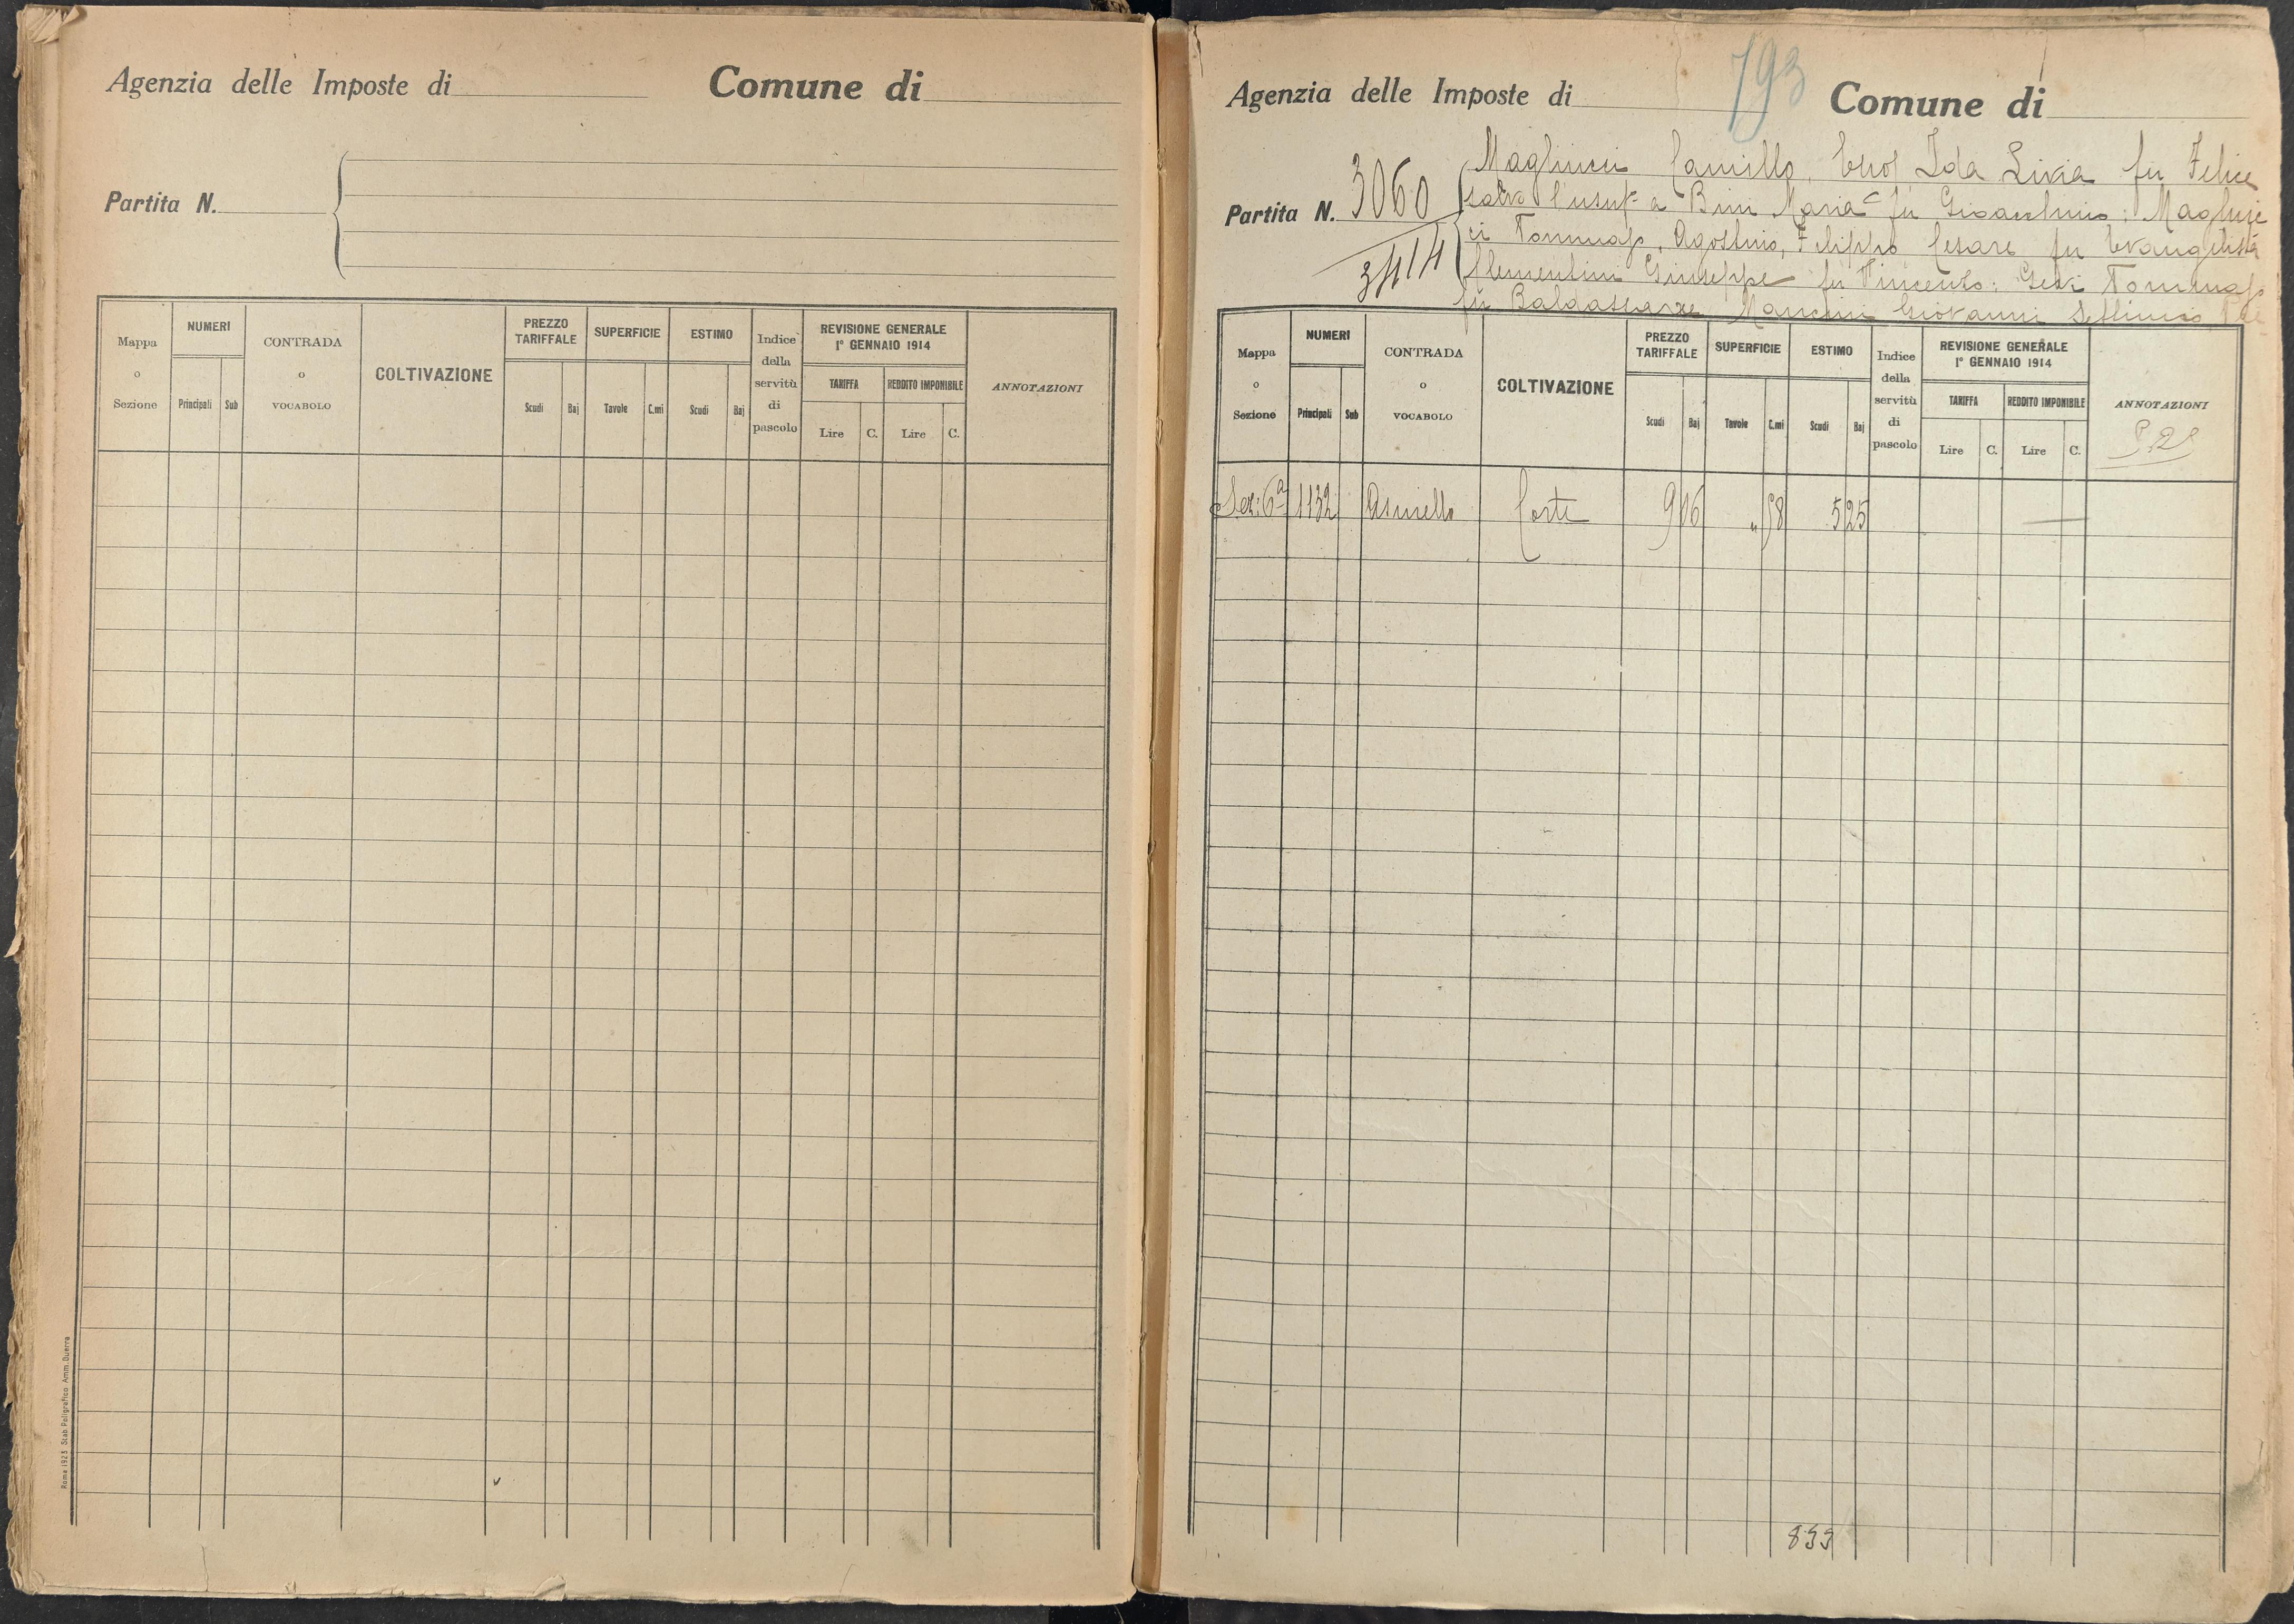 Agenzia delle Imposte di
Comune di
Partita N.
Mappa o Sezione
NUMERI
Principali
Sub
CONTRADA o VOCABOLO
COLTIVAZIONE
PREZZO TARIFFALE
Scudi
Baj
SUPERFICIE
Tavole
C.mi
ESTIMO
Scudi
Baj
Indice della servitù di pascolo
REVISIONE GENERALE
1° GENNAIO 1914
TARIFFA
REDDITO IMPONIBILE
Lire
C.
Lire
C.
ANNOTAZIONI
Roma 1923 Stab. Poligrafico Amm. Guerra
793
Agenzia delle Imposte di
Comune di
Partita N. 3060
Camillo, Ida Livia fu Felice
salvo l'usuf a Bini Maria fu Gioacchino;
ci Tommaso, Agostino, Filippo Cesare fu Evangelista
Clementini Giuseppe fu Vincenzo; Tommaso
fu Baldassarre Mancini Giovanni Settimio
Mappa o Sezione
NUMERI
Principali
Sub
CONTRADA o VOCABOLO
COLTIVAZIONE
PREZZO TARIFFALE
Scudi
Baj
SUPERFICIE
Tavole
C.mi
ESTIMO
Scudi
Baj
Indice della servitù di pascolo
REVISIONE GENERALE
1° GENNAIO 1914
TARIFFA
REDDITO IMPONIBILE
Lire
C.
Lire
C.
ANNOTAZIONI
Sez: 6ª 1132 Asinello Corte 9 06 „ 58 5 25